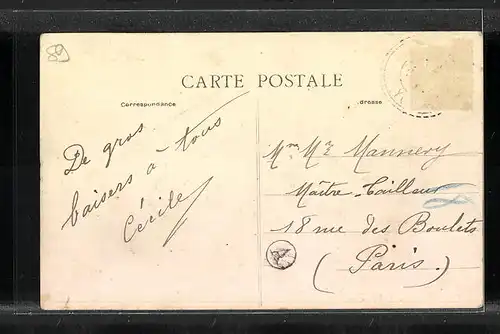 CARTE POSTALE
Correspondance
dresse
De gros
baisers à tous
Cécile
Mr Me Mannery
Maître-Tailleur
18 rue des Boulets
(Paris.)